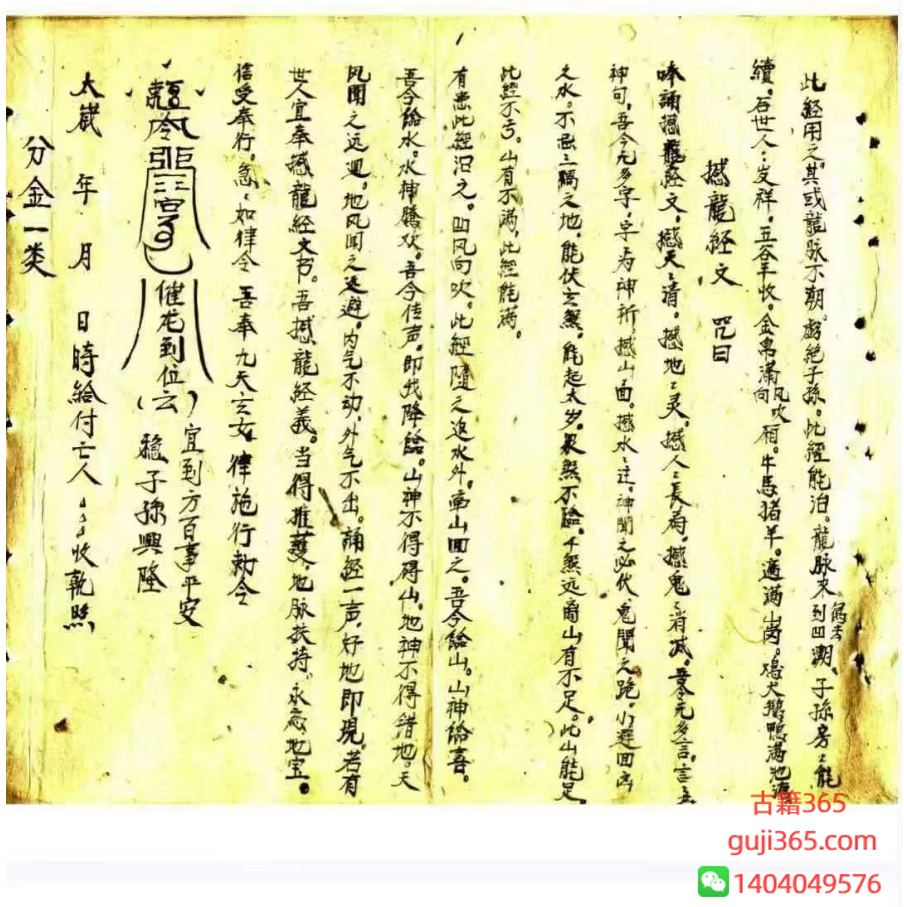 此經用之。其或龍脉不朝。虧絕子孫。此經能泊。龍脉來到四朝、子孫房々能
續。石世人々发祥。五谷丰收。金帛滿向風吹厢。牛馬猪羊。滿山崗。鸡犬鵝鴨滿池
撼龍經文 咒曰
奉誦撼龍經文。撼天々清。撼地々灵。撼人々長寿。撼鬼々消减。吾今元多言。言
神句。吾今元多字。字为神祈。撼山面。撼水々迁。神聞之必伏鬼聞之跪。小避回
之水。不忌三禍之地。能伏玄煞。能起太岁。煞不臨。千煞远。山有不足。此山能足。
此經不亏。山有不滿。此經能滿。
有悪此經泪之。四风向吹。此經隨之返水外。山回之。吾今給山。山神給喜。
吾今給水。水神勝欢。吾今佳声。即伐降臨。山神不得碍山。地神不得錯地。天
风聞之远迴。地风聞之远避。内气不动。外气不出。誦經一声。好地即現。若有
世人宜奉撼龍經文书。吾撼龍經義。当得推護。地脉扶持。永急地宝。
信受奉行。急々如律令 吾奉九天玄女律施行勅令
催龙到位(云)
宜到方百事平安
穏子孫興隆
太歲 年 月 日時給付亡人 收執照
分金一类
古籍365
guji365.com
1404049576